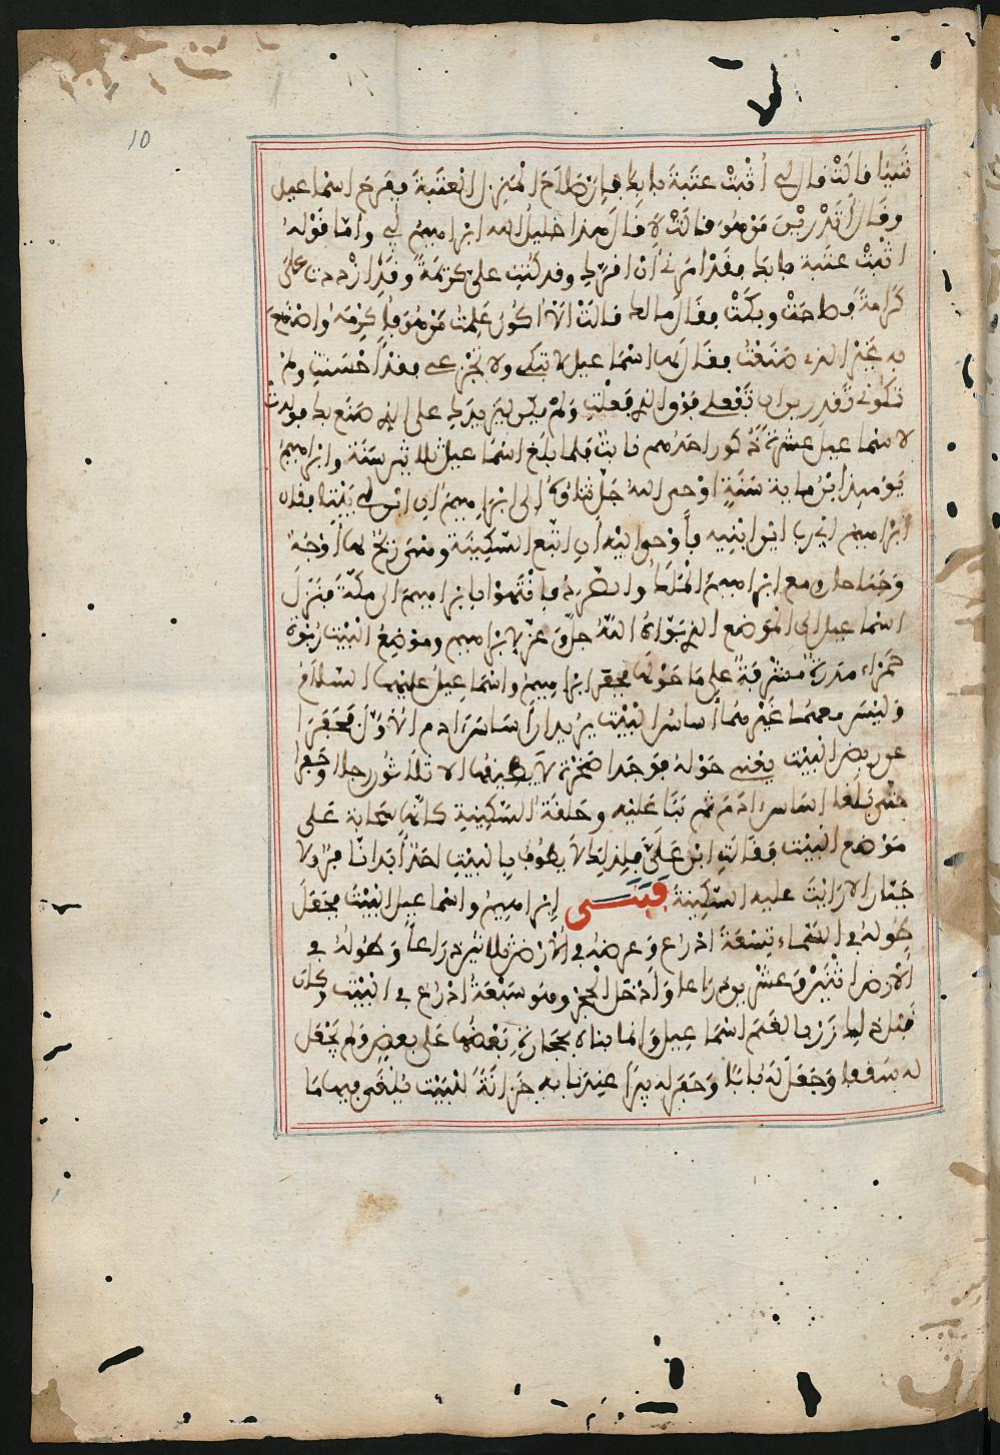 10
شيئا قالت قال لي اثبت عتبة بابك فان صلاح المنزل العتبة ففرح اسماعيل
وقال اتدرين من هو قالت لا قال هذا خليل الله ابراهيم ابي واما قوله
اثبت عتبة بابك فقد امرني ان اقرك وقد كنت علي كريمة وقد ازددت علي
كرامة فصاحت وبكت فقال مالك قالت الا اكون علمت من هو فاكرمه واصنع
به غير الذي صنعت فقال لها اسماعيل لا تبكي ولا تجزعي فقد احسنت ولم
تكوني تقدرين ان تفعلي فوق الذي فعلت ولم يكن ليزيدك على الذي صنع بك فولدت
لاسماعيل عشرة ذكور احدهم نابت فلما بلغ اسماعيل ثلاثين سنة وابراهيم
يومئذ ابن ماية سنة اوحى الله جل ثناوه الى ابراهيم ان ابن لي بيتا فقال
ابراهيم اي رب اين ابنيه فاوحى اليه ان اتبع السكينة وهي ريح لها وجه
وجناحان ومع ابراهيم الملك والصرد فانتهوا بابراهيم الى مكة فنزل
اسماعيل الى الموضع الذي بواه الله جل وعز لابراهيم وموضع البيت ربوة
حمراء مدرة مشرفة على ما حولها فحفر ابراهيم واسماعيل عليهما السلام
وليس معهما غيرهما اساس البيت يريدان اساس ادم الاول فحفرا
عن ربض البيت يعني حوله فوجدا صخرة لا يطيقها الا ثلاثون رجلا وحفرا
حتى بلغا اساس ادم ثم بنا عليه وحلقت السكينة كانها سحابة على
موضع البيت فقالت ابن علي فلذلك لا يطوف بالبيت احد ابدا نافر ولا
جبار الا رايت عليه السكينة فبنى ابراهيم واسماعيل البيت فجعل
طوله في السماء تسعة اذرع وعرضه في الارض ثلاثين ذراعا وطوله في
الارض اثنين وعشرين ذراعا وادخل الحجر وهو سبعة اذرع في البيت وكان
قبل ذلك زربا لغنم اسماعيل وانما بناه بحجارة بعضها على بعض ولم يجعل
له سقفا وجعل له بابا وحفر له بيرا عند بابه خزانة للبيت يلقى فيها ما